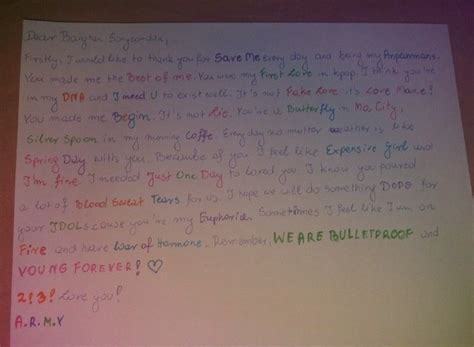 Dear Bangtan Sonyeondan,
Firstly, I would like to thank you for Save Me every day and being my Anpanmans.
You made me the Best of me. You was my First Love in kpop. I think you're
in my DNA and I need U to exist well. It's not Fake Love it's Love Maze!
You made me Begin. It's not Lie. You're is Butterfly in No City,
Silver Spoon in my morning Coffe. Every day and matter weather is like
Spring Day with you. Because of you I feel like Expensive girl and
I'm fine. I needed Just One Day to loved you I know you poured
a lot of Blood Sweat Tears for us. I hope we will do something DOPE for
your IDOLs cause you're my Euphoria. Sometimes I feel like I um on
Fire and have War of Hormone. Remember, WE ARE BULLETPROOF and
YOUNG FOREVER! ♡
2! 3! Love you!
A.R.M.Y